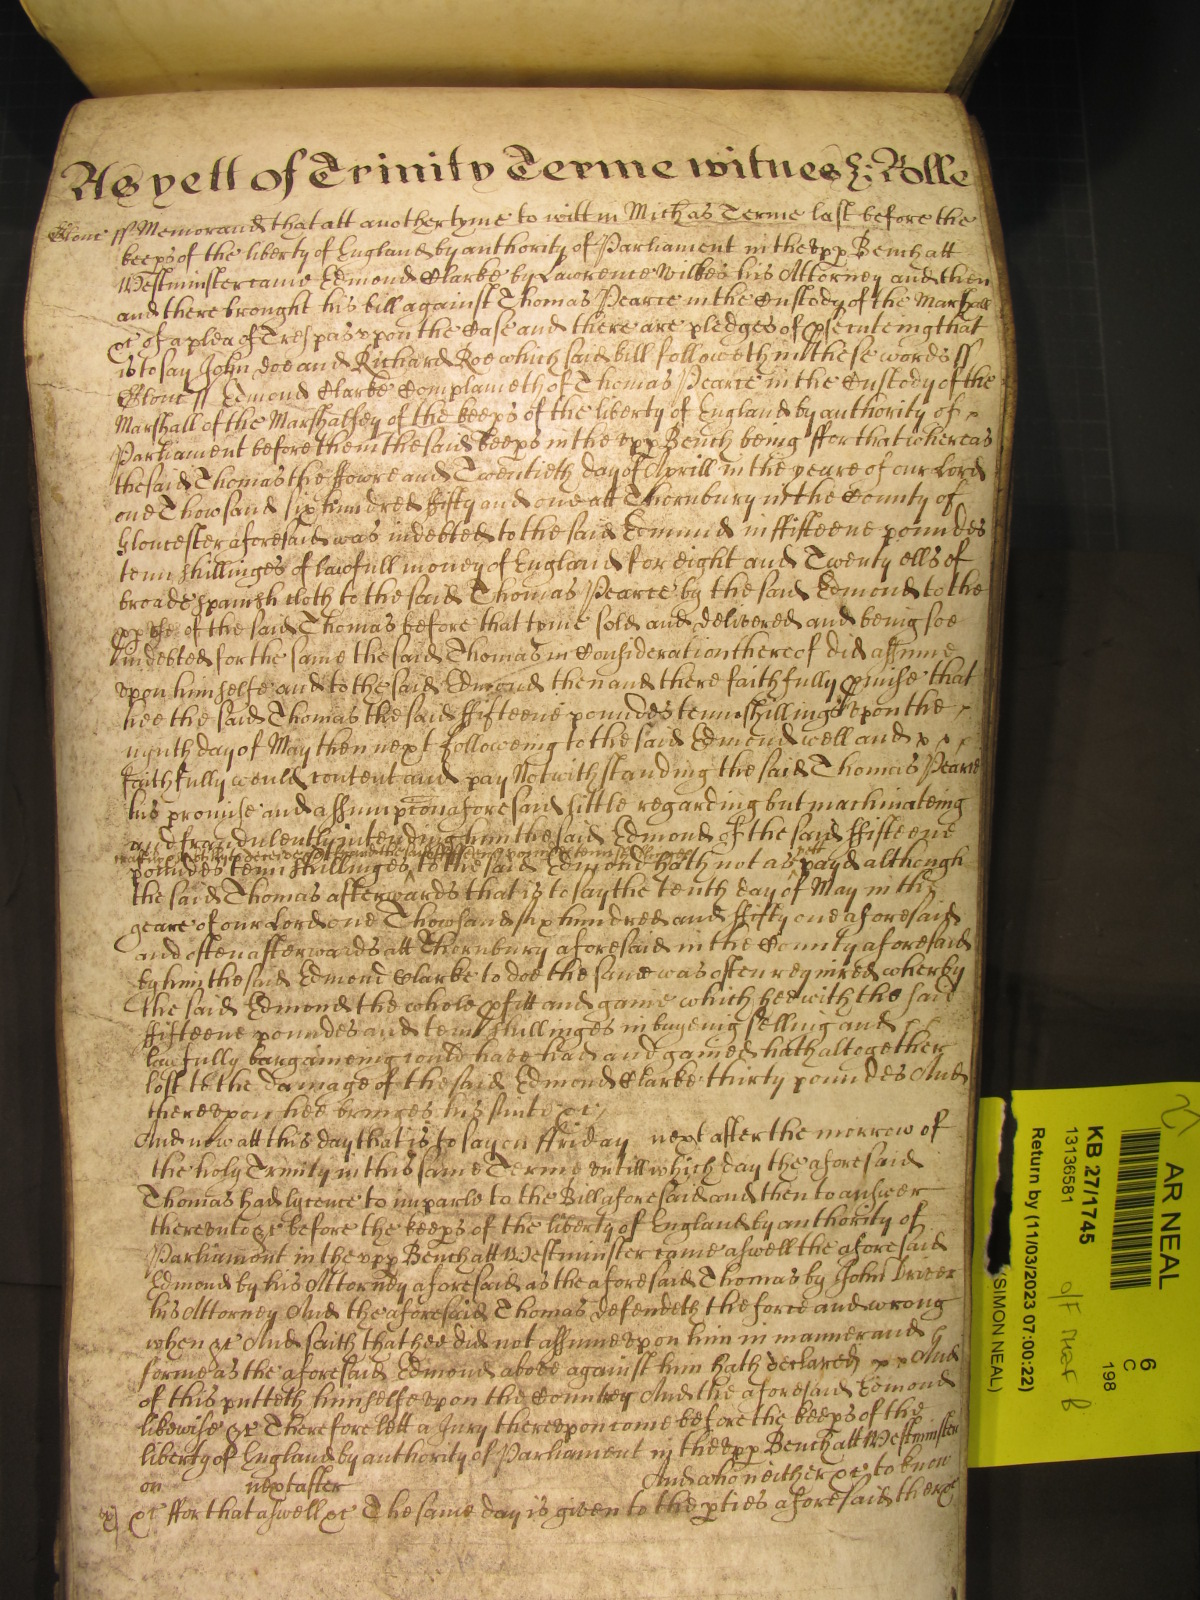 As yett of Trinity Terme witnes H: Rolle
Glouc ss Memorand that att another tyme to witt in Michas Terme last before the
keeps of the liberty of England by authority of Parliament in the upp Bench att
Westminster came Edmond Clarke by Lawrence Wilkes his Attorney and then
and there brought his bill against Thomas Pearce in the Custody of the Marshall
&c of a plea of Trespas upon the Case and there are pledges of psecuteing that
is to say John doe and Richard Roe which said bill followeth in these words ss
Glouc ss Edmond Clarke Complaineth of Thomas Pearce in the Custody of the
Marshall of the Marshalsey of the keeps of the liberty of England by authority of
Parliament before them the said keeps in the upp Bench being ffor that whereas
the said Thomas the ffowre and Twentieth day of Aprill in the yeare of our Lord
one Thowsand six hundred ffifty and one att Thornbury in the County of
Gloucester aforesaid was indebted to the said Edmund in ffifteene poundes
tenn shillinges of lawfull money of England for eight and Twenty ells of
broade spanish cloth to the said Thomas Pearce by the said Edmond to the
pp use of the said Thomas before that tyme sold and delivered and being soe
indebted for the same the said Thomas in Consideration thereof did assume
upon himselfe and to the said Edmond then and there faithfully pmise that
hee the said Thomas the said ffifteene poundes tenn shillings upon the
nynth day of May then next followeing to the said Edmond well and
faithfully would content and pay Notwithstanding the said Thomas Pearce
his promise and assumpcon aforesaid little regarding but machinateing
and fraudulently intending him the said Edmond of the said ffifteene
poundes tenn shillinges to the said Edmond hath not as yett payd although
the said Thomas afterwards that is to say the tenth day of May in the
yeare of our Lord one Thowsand six hundred and ffifty one aforesaid
and often afterwards att Thornbury aforesaid in the County aforesaid
by him the said Edmond Clarke to doe the same was often required wherby
the said Edmond the whole pfitt and gaine which hee with the said
ffifteene poundes and tenn shillinges in buyenig selling and
lawfully bargaineing could have had and gained hath altogether
lost to the damage of the said Edmond Clarke thirty poundes And
thereupon hee bringes his suite &c
And now att this day that is to say on ffriday next after the morrow of
the holy Trinity in this same Terme untill which day the aforesaid
Thomas had lycence to imparle to the Bill aforesaid and then to answer
thereunto &c before the keeps of the liberty of England by authority of
Parliament in the upp Bench att Westminster came aswell the aforesaid
Edmond by his Attorney aforesaid as the aforesaid Thomas by John
his Attorney And the aforesaid Thomas defendeth the force and wrong
when &c And saith that hee did not assume upon him in manner and
forme as the aforesaid Edmond above against him hath declared And
of this putteth himselfe upon the Countrey And the aforesaid Edmond
likewise &c Therefore lett a Jury thereupon come before the keeps of the
liberty of England by authority of Parliament in the upp Bench att Westminster
on next after And who neither &c to know
&c ffor that aswell &c The same day is given to the pties aforesaid there &c
AR NEAL
KB 27/1745
13136581
Return by (11/03/2023 07:00:22)
(SIMON NEAL)
6
C
198